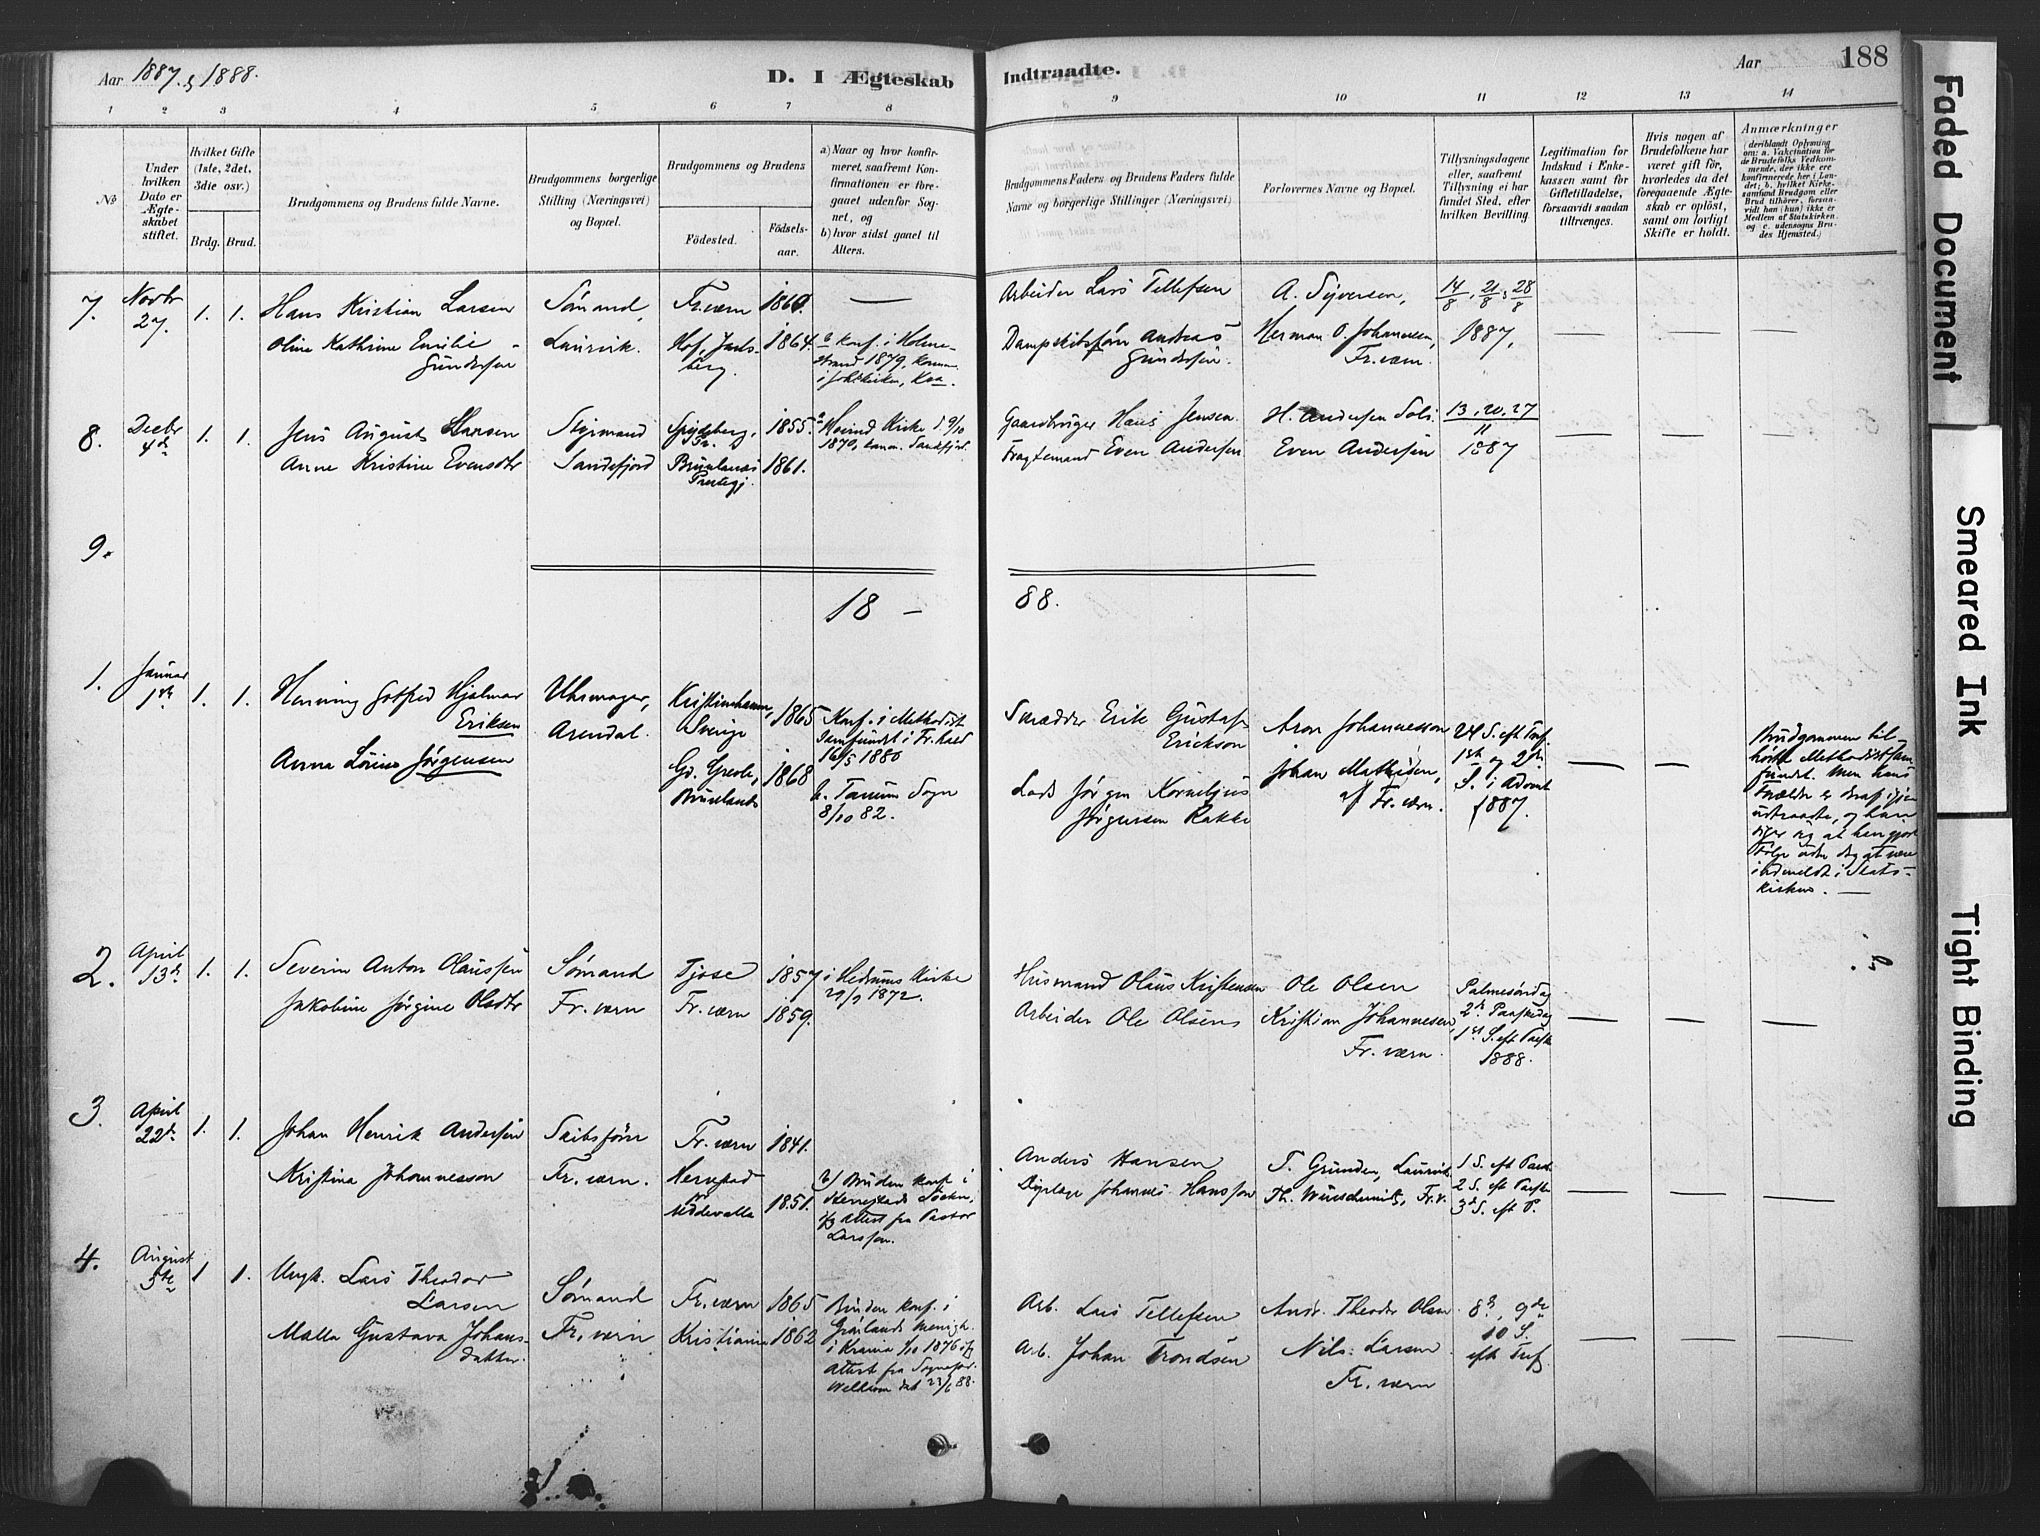 Aar 1887 & 1888.
D. I Ægteskab
Indtraadte.
Aar
188
1 2 3 4 5 6 7 8
8 9 10 11 12 13 14
No
Under hvilken Dato er Ægteskabet stiftet.
Hvilket Gifte (1ste, 2det, 3die osv.)
Brdg.
Brud.
Brudgommens og Brudens fulde Navne.
Brudgommens borgerlige Stilling (Næringsvei) og Bopæl.
Brudgommens og Brudens
Fødested.
Fødselsaar.
a) Naar og hvor konfirmeret, saafremt Konfirmationen er foregaaet udenfor Sognet, og
b) hvor sidst gaaet til Alters.
Brudgommens Faders og Brudens Faders fulde Navne og borgerlige Stillinger (Næringsvei)
Forlovernes Navne og Bopæl.
Tillysningsdagene eller, saafremt Tillysning ei har fundet Sted, efter hvilken Bevilling.
Legitimation for Indskud i Enkekassen samt for Giftetilladelse, forsaavidt saadan tiltrænges.
Hvis nogen af Brudefolkene har været gift før, hvorledes da det foregaaende Ægteskab er opløst, samt om lovligt Skifte er holdt.
Anmærkninger
(deriblandt Oplysning om: a. Vakcination for de Brudefolks Vedkommende, der ikke ere konfirmerede her i Landet; b. hvilket Kirkesamfund Brudgom eller Brud tilhører, forsaavidt han (hun) ikke er Medlem af Statskirken, og c. udensogns Brudes Hjemsted.)
7. Novbr 27. 1. 1. Hans Kristian Larsen Sømand, Fr.værn 1860. —
Oline Kathrine Emilie Gundersen Laurvik. Hof, Jarlsberg. 1864. konf. i Holmestrand 1879,
Arbeider Lars Tellefsen A. Syversen, 14/8, 21/8, 28/8
Dampskibsfører Andreas Gundersen Herman O. Johannesen, Fr.værn. 1887.
8. Decbr 4d 1. 1. Jens August Hansen Styrmand 1855. Kirke d. 9/10 1870,
Anne Kristine Evensdtr Sandefjord Brunlanes Prestegj. 1861.
Gaardbruger Hans Jensen H. Andersen 13, 20, 27
Fragtemand Even Andersen Even Andersen 11 1887
9.
18 — 88.
1. Januar 1. 1. Henning Gotfred Hjalmar Eriksen Uhrmager, Arendal. Kristinehamn, Sverige 1865 Konf. i Methodist Samfundet i Fr.hald 16/5 1880
Anna Lovise Jørgensen Brunlanes 1868 b. Tanum Sogn 8/10 82.
Skrædder Erik Gustaf Erickson Aron Johannesson 24 S. eft Tref.
Lods Jørgen Kornelius Jørgensen Rakke Johan Mathisen, af Fr.værn. 1ste og 2den S. i Advent 1887.
Brudgommen tilhører Methodistsamfundet. Men hans Forældre er udtraadte, og han siger sig at indmeldt i Statskirken. —
2. April 13d 1. 1. Severin Anton Olaussen Sømand Tjose 1857 i Hedrums Kirke 29/9 1872.
Jakobine Jørgine Olsdtr Fr.værn Fr.værn 1859.
Husmand Olaus Kristensen Ole Olsen Palmesøndag
Arbeider Ole Olsen Kristian Johannesen, Fr.værn. 2d Paaskedag 1st S. eft Paaske 1888.
3. April 22d 1. 1. Johan Henrik Andersen Skibsfører Fr.værn 1841.
Kristina Johannesson Fr.værn. Herrestad Uddevalla 1851. Bruden konf. i Herrestads Socken, Attest fra Pastor Larsson.
Anders Hansen T. Grunden, Laurvik 1 S. eft Paaske
Johannes Hansson Th. Wunschmits, Fr.v. 2 S. eft Paaske 3d S. eft P.
4. August 5te 1 1. Ungk. Lars Theodor Larsen Sømand Fr.værn 1865
Malla Gustava Johansdatter. Fr.værn Kristiania 1862 Bruden konf. i Grønlands Menigh. 1876 Attest fra Sognepr. dat 23/6 88.
Arb. Lars Tellefsen Andr. Theodor Olsen 8d, 9de
Arb. Johan Trondsen Nils Larsen Fr.værn 10 S. eft Tref.
Faded Document
Smeared Ink
Tight Binding